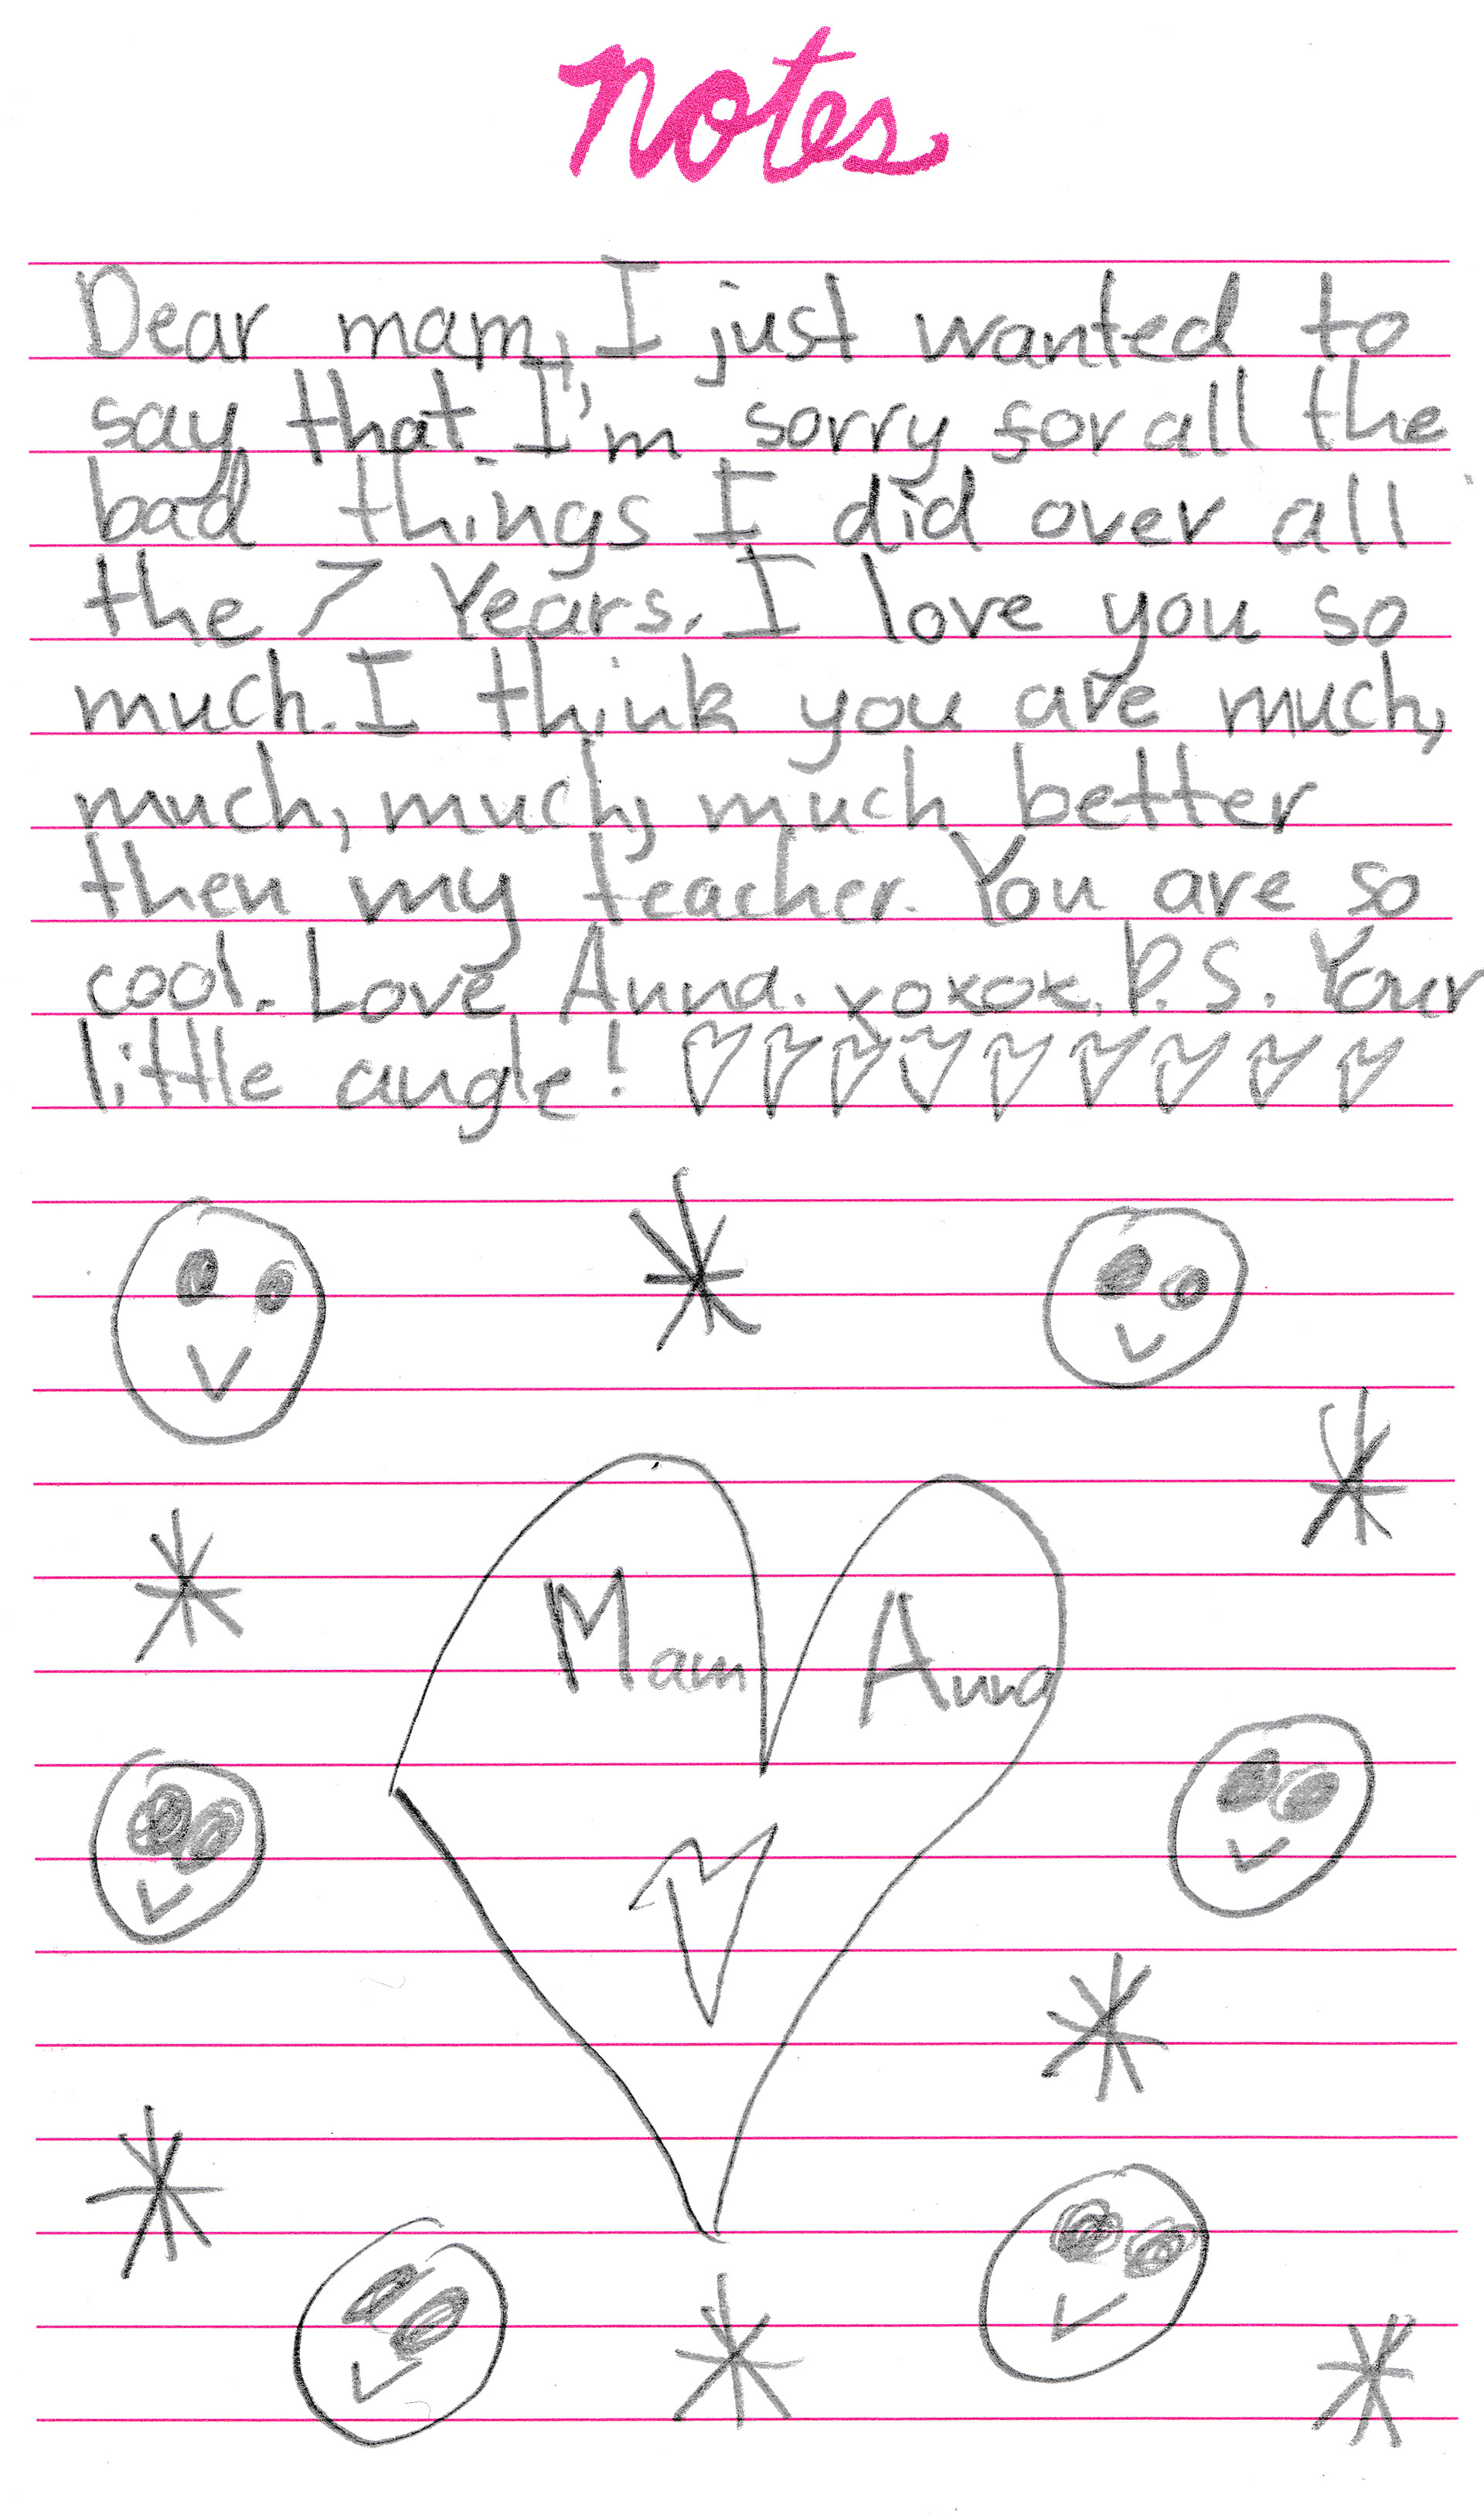 notes
Dear mam, I just wanted to
say that I'm sorry for all the
bad things I did over all
the 7 Years. I love you so
much. I think you are much,
much, much, much better
then my teacher. You are so
cool. Love Anna. xoxox. P.S. Your
little angle! ♡♡♡♡♡♡♡♡♡
Mam Anna